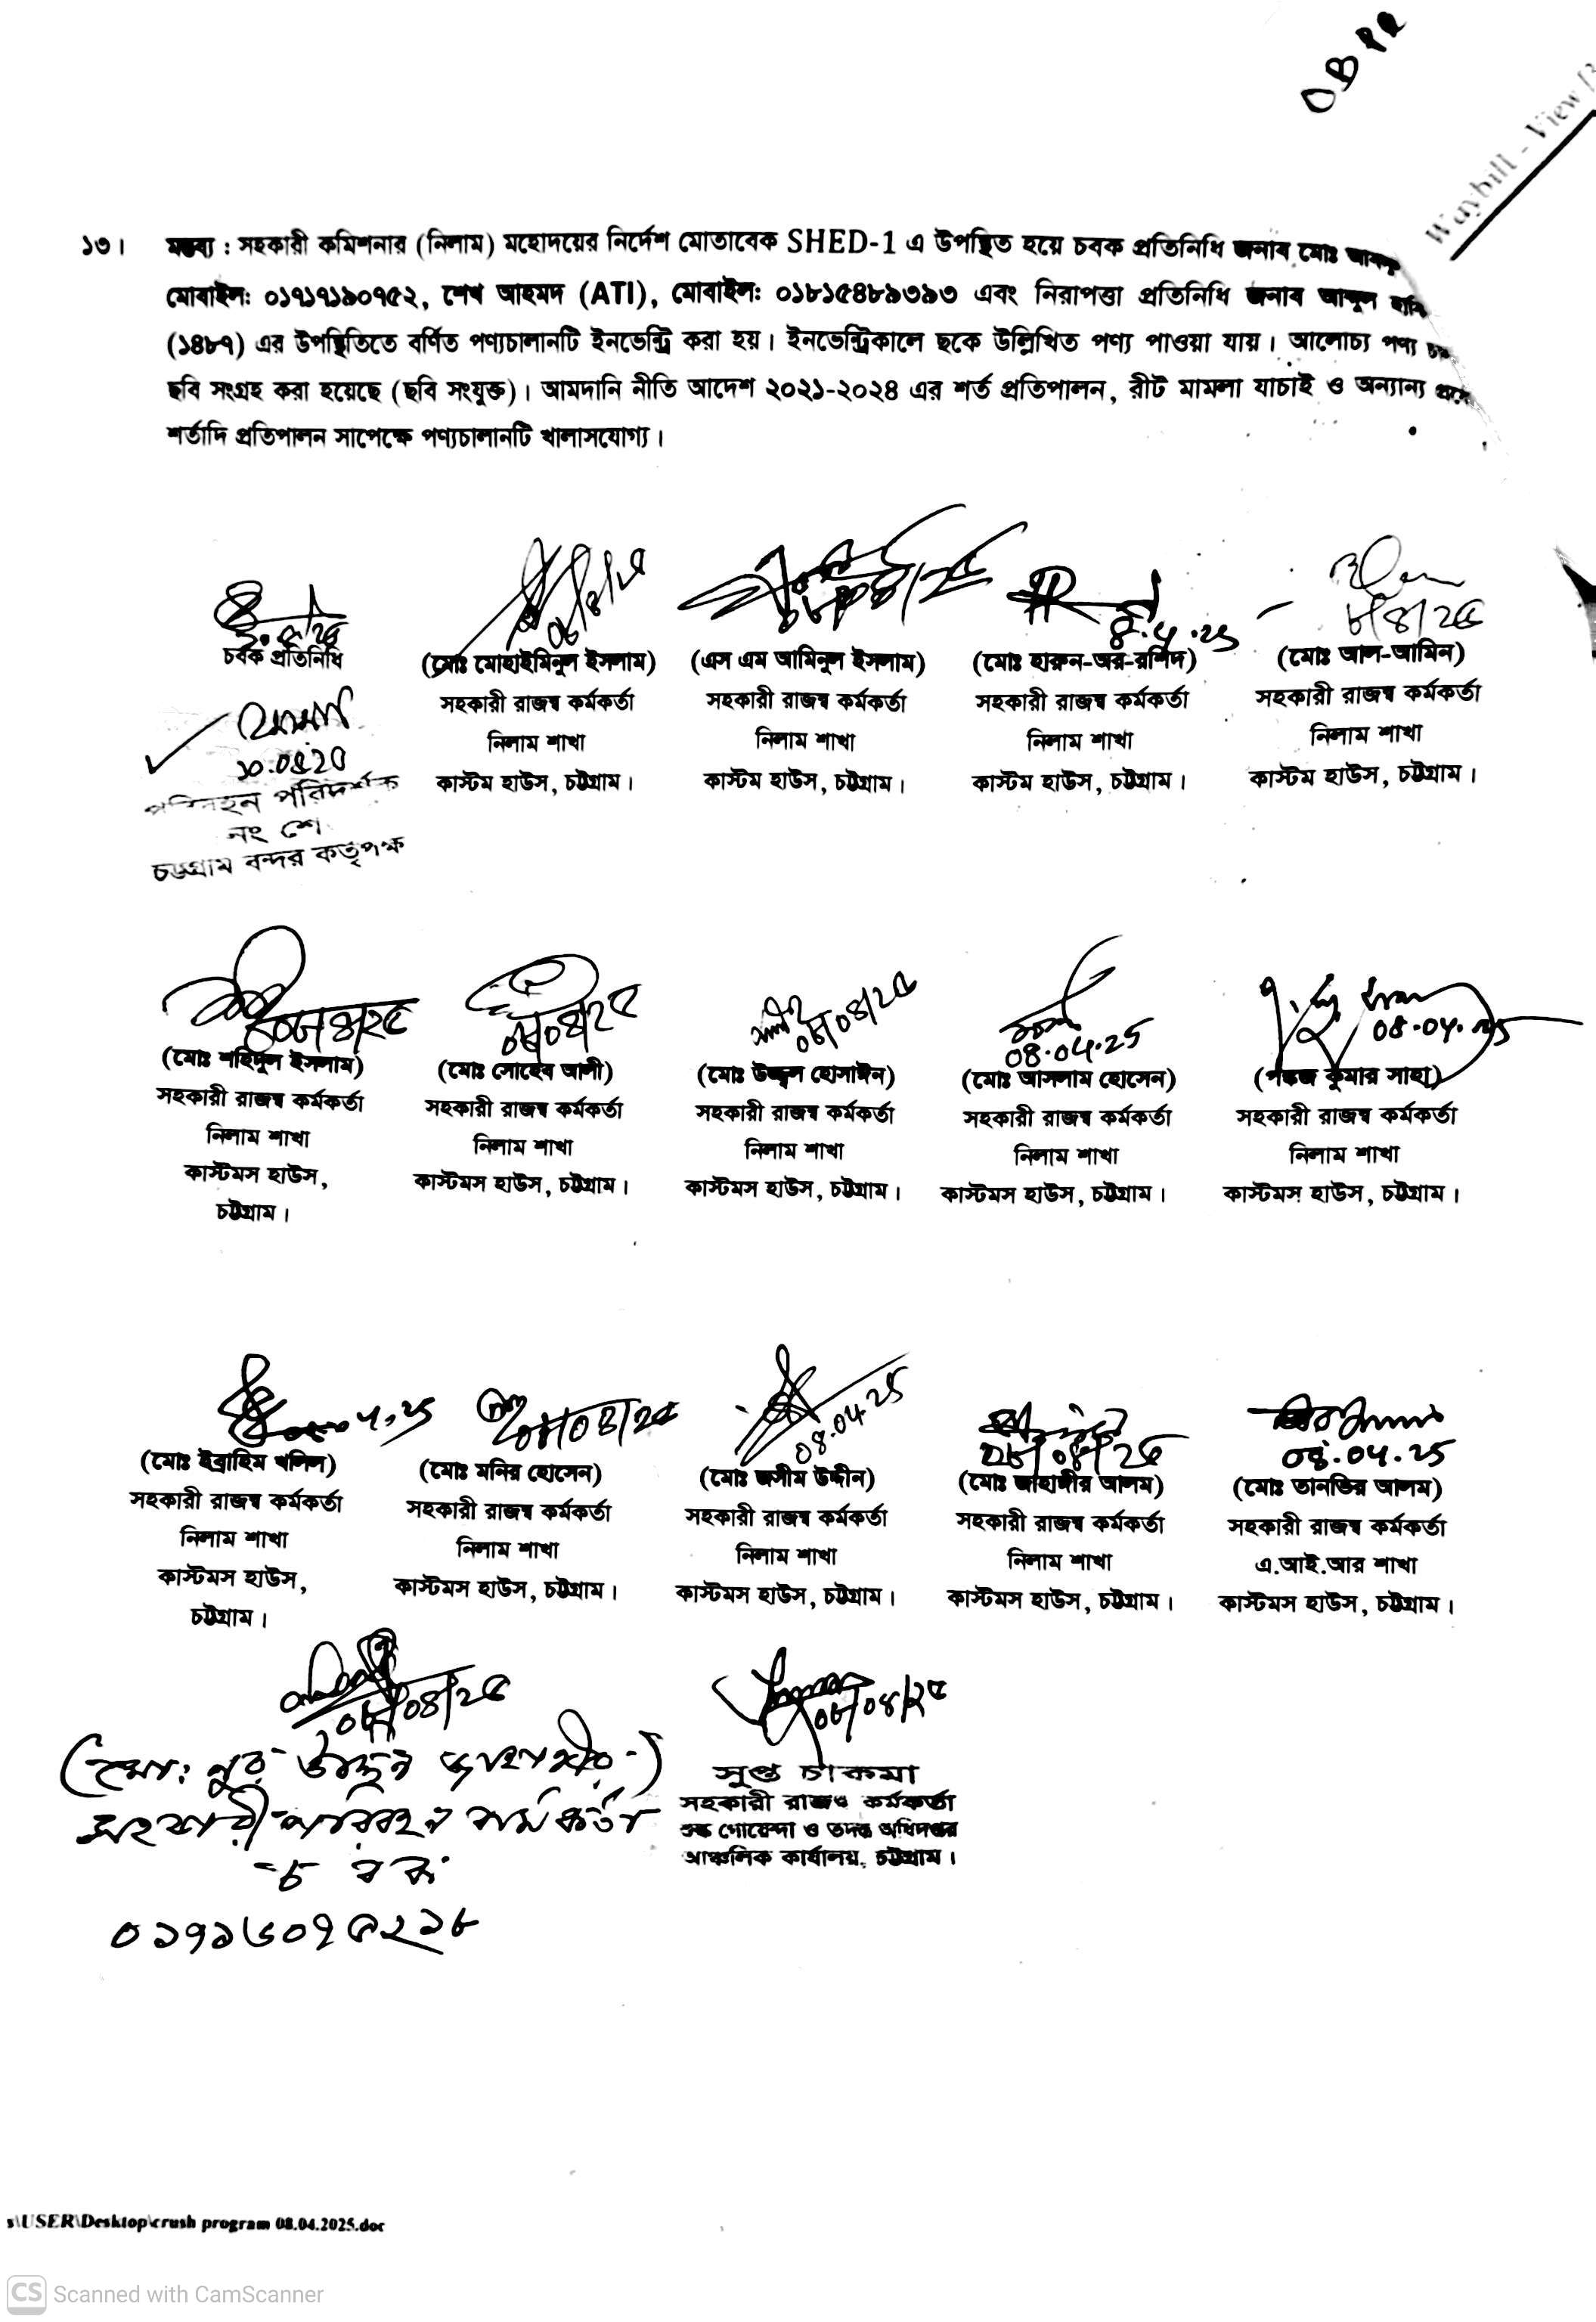 Waybill - View
১৩। মন্তব্য : সহকারী কমিশনার (নিলাম) মহোদয়ের নির্দেশ মোতাবেক SHED-1 এ উপস্থিত হয়ে চবক প্রতিনিধি জনাব মোঃ
মোবাইল: ০১৭১৭১৯০৭৫২, শেখ আহমদ (ATI), মোবাইল: ০১৮১৫৪৮৯৩৯৩ এবং নিরাপত্তা প্রতিনিধি জনাব আব্দুল
(১৪৮৭) এর উপস্থিতিতে বর্ণিত পণ্যচালানটি ইনভেন্ট্রি করা হয়। ইনভেন্ট্রিকালে ছকে উল্লিখিত পণ্য পাওয়া যায়। আলোচ্য পণ্য
ছবি সংগ্রহ করা হয়েছে (ছবি সংযুক্ত)। আমদানি নীতি আদেশ ২০২১-২০২৪ এর শর্ত প্রতিপালন, রীট মামলা যাচাই ও অন্যান্য
শর্তাদি প্রতিপালন সাপেক্ষে পণ্যচালানটি খালাসযোগ্য।
৮/৪/২৫
8.4.25
চবক প্রতিনিধি (মোঃ মোহাইমিনুল ইসলাম) (এস এম আমিনুল ইসলাম) (মোঃ হারুন-অর-রশিদ) (মোঃ আল-আমিন)
সহকারী রাজস্ব কর্মকর্তা সহকারী রাজস্ব কর্মকর্তা সহকারী রাজস্ব কর্মকর্তা সহকারী রাজস্ব কর্মকর্তা
নিলাম শাখা নিলাম শাখা নিলাম শাখা নিলাম শাখা
কাস্টম হাউস, চট্টগ্রাম। কাস্টম হাউস, চট্টগ্রাম। কাস্টম হাউস, চট্টগ্রাম। কাস্টম হাউস, চট্টগ্রাম।
পরিবহন পরিদর্শক
নং শে
চট্টগ্রাম বন্দর কর্তৃপক্ষ
০৮/০৪/২৫ ০৮/০৪/২৫ 08.04.25 08.04.25
(মোঃ শহিদুল ইসলাম) (মোঃ সোহেব আলী) (মোঃ উজ্জ্বল হোসাঈন) (মোঃ আসলাম হোসেন) (পঙ্কজ কুমার সাহা)
সহকারী রাজস্ব কর্মকর্তা সহকারী রাজস্ব কর্মকর্তা সহকারী রাজস্ব কর্মকর্তা সহকারী রাজস্ব কর্মকর্তা সহকারী রাজস্ব কর্মকর্তা
নিলাম শাখা নিলাম শাখা নিলাম শাখা নিলাম শাখা নিলাম শাখা
কাস্টমস হাউস, কাস্টমস হাউস, চট্টগ্রাম। কাস্টমস হাউস, চট্টগ্রাম। কাস্টমস হাউস, চট্টগ্রাম। কাস্টমস হাউস, চট্টগ্রাম।
চট্টগ্রাম।
০৮/০৪/২৫ 08.04.25 ০৮/০৪/২৫ 08.04.25
(মোঃ ইব্রাহিম খলিল) (মোঃ মনির হোসেন) (মোঃ জসীম উদ্দীন) (মোঃ জাহাঙ্গীর আলম) (মোঃ তানভির আলম)
সহকারী রাজস্ব কর্মকর্তা সহকারী রাজস্ব কর্মকর্তা সহকারী রাজস্ব কর্মকর্তা সহকারী রাজস্ব কর্মকর্তা সহকারী রাজস্ব কর্মকর্তা
নিলাম শাখা নিলাম শাখা নিলাম শাখা নিলাম শাখা এ.আই.আর শাখা
কাস্টমস হাউস, কাস্টমস হাউস, চট্টগ্রাম। কাস্টমস হাউস, চট্টগ্রাম। কাস্টমস হাউস, চট্টগ্রাম। কাস্টমস হাউস, চট্টগ্রাম।
চট্টগ্রাম।
০৮/০৪/২৫ ০৮/০৪/২৫
(মো: নুর উদ্দিন জাহাঙ্গীর)
সহকারী পরিবহন কর্মকর্তা
চবক
০১৭১৬০৭৫২১৮
সুপ্ত চাকমা
সহকারী রাজস্ব কর্মকর্তা
শুল্ক গোয়েন্দা ও তদন্ত অধিদপ্তর
আঞ্চলিক কার্যালয়, চট্টগ্রাম।
s\USER\Desktop\crush program 08.04.2025.doc
CS Scanned with CamScanner